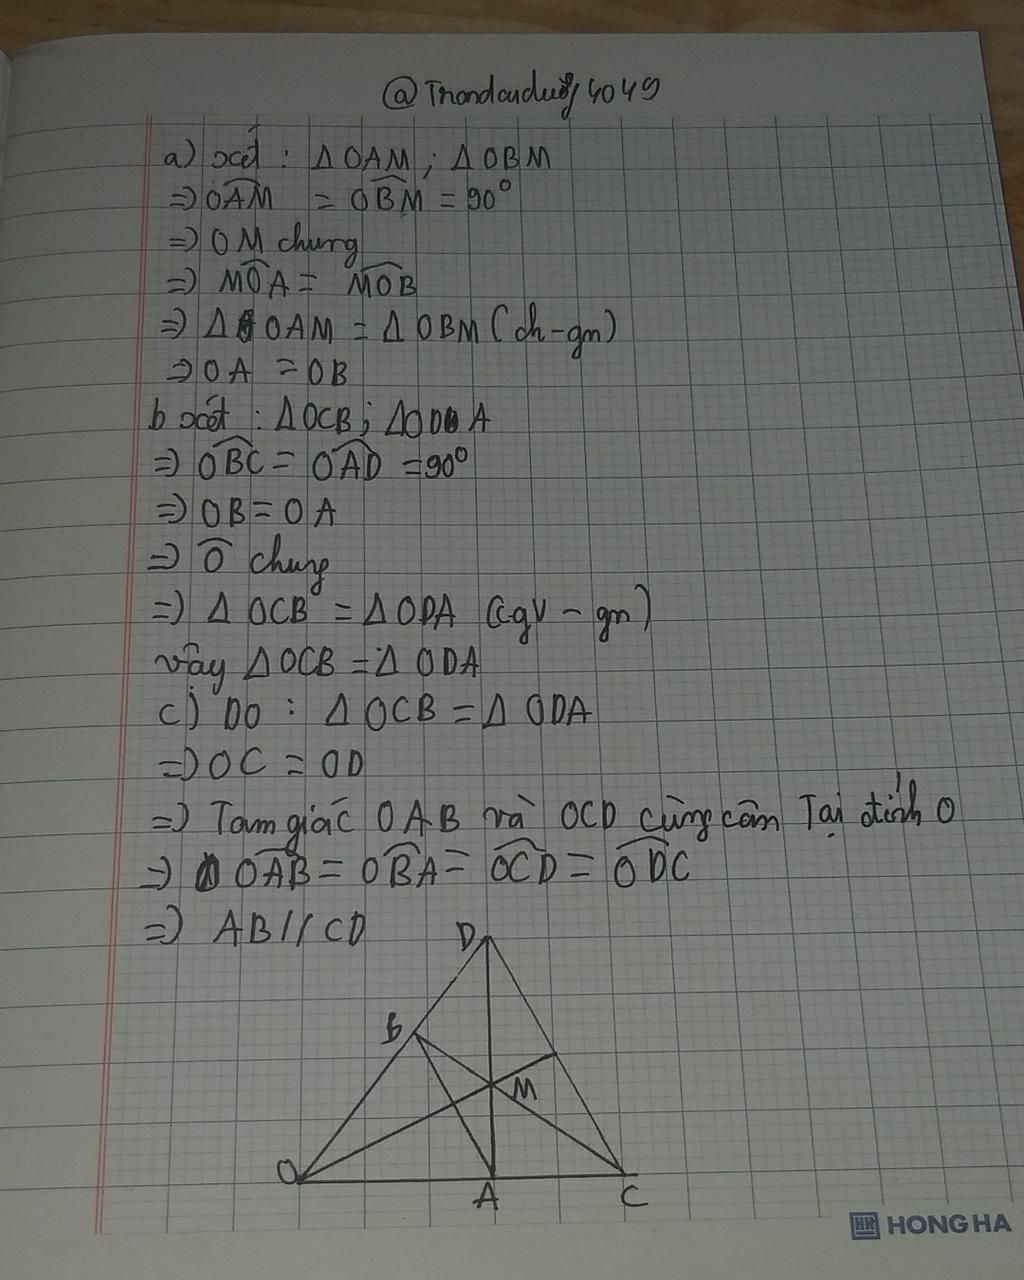 a) xét : Δ OAM ; Δ OBM
⇒ OAM = OBM = 90°
⇒ OM chung
⇒ MOA = MOB
⇒ Δ OAM = Δ OBM (ch - gn)
⇒ OA = OB
b xét : Δ OCB ; Δ OD A
⇒ OBC = OAD = 90°
⇒ OB = OA
⇒ O chung
⇒ Δ OCB = Δ ODA (cgv - gn)
vậy Δ OCB = Δ ODA
c) DO : Δ OCB = Δ ODA
⇒ OC = OD
⇒ Tam giác OAB và OCD cùng cân Tại đỉnh O
⇒ OAB = OBA = OCD = ODC
⇒ AB // CD
D
B
M
O
A
C
HONG HA